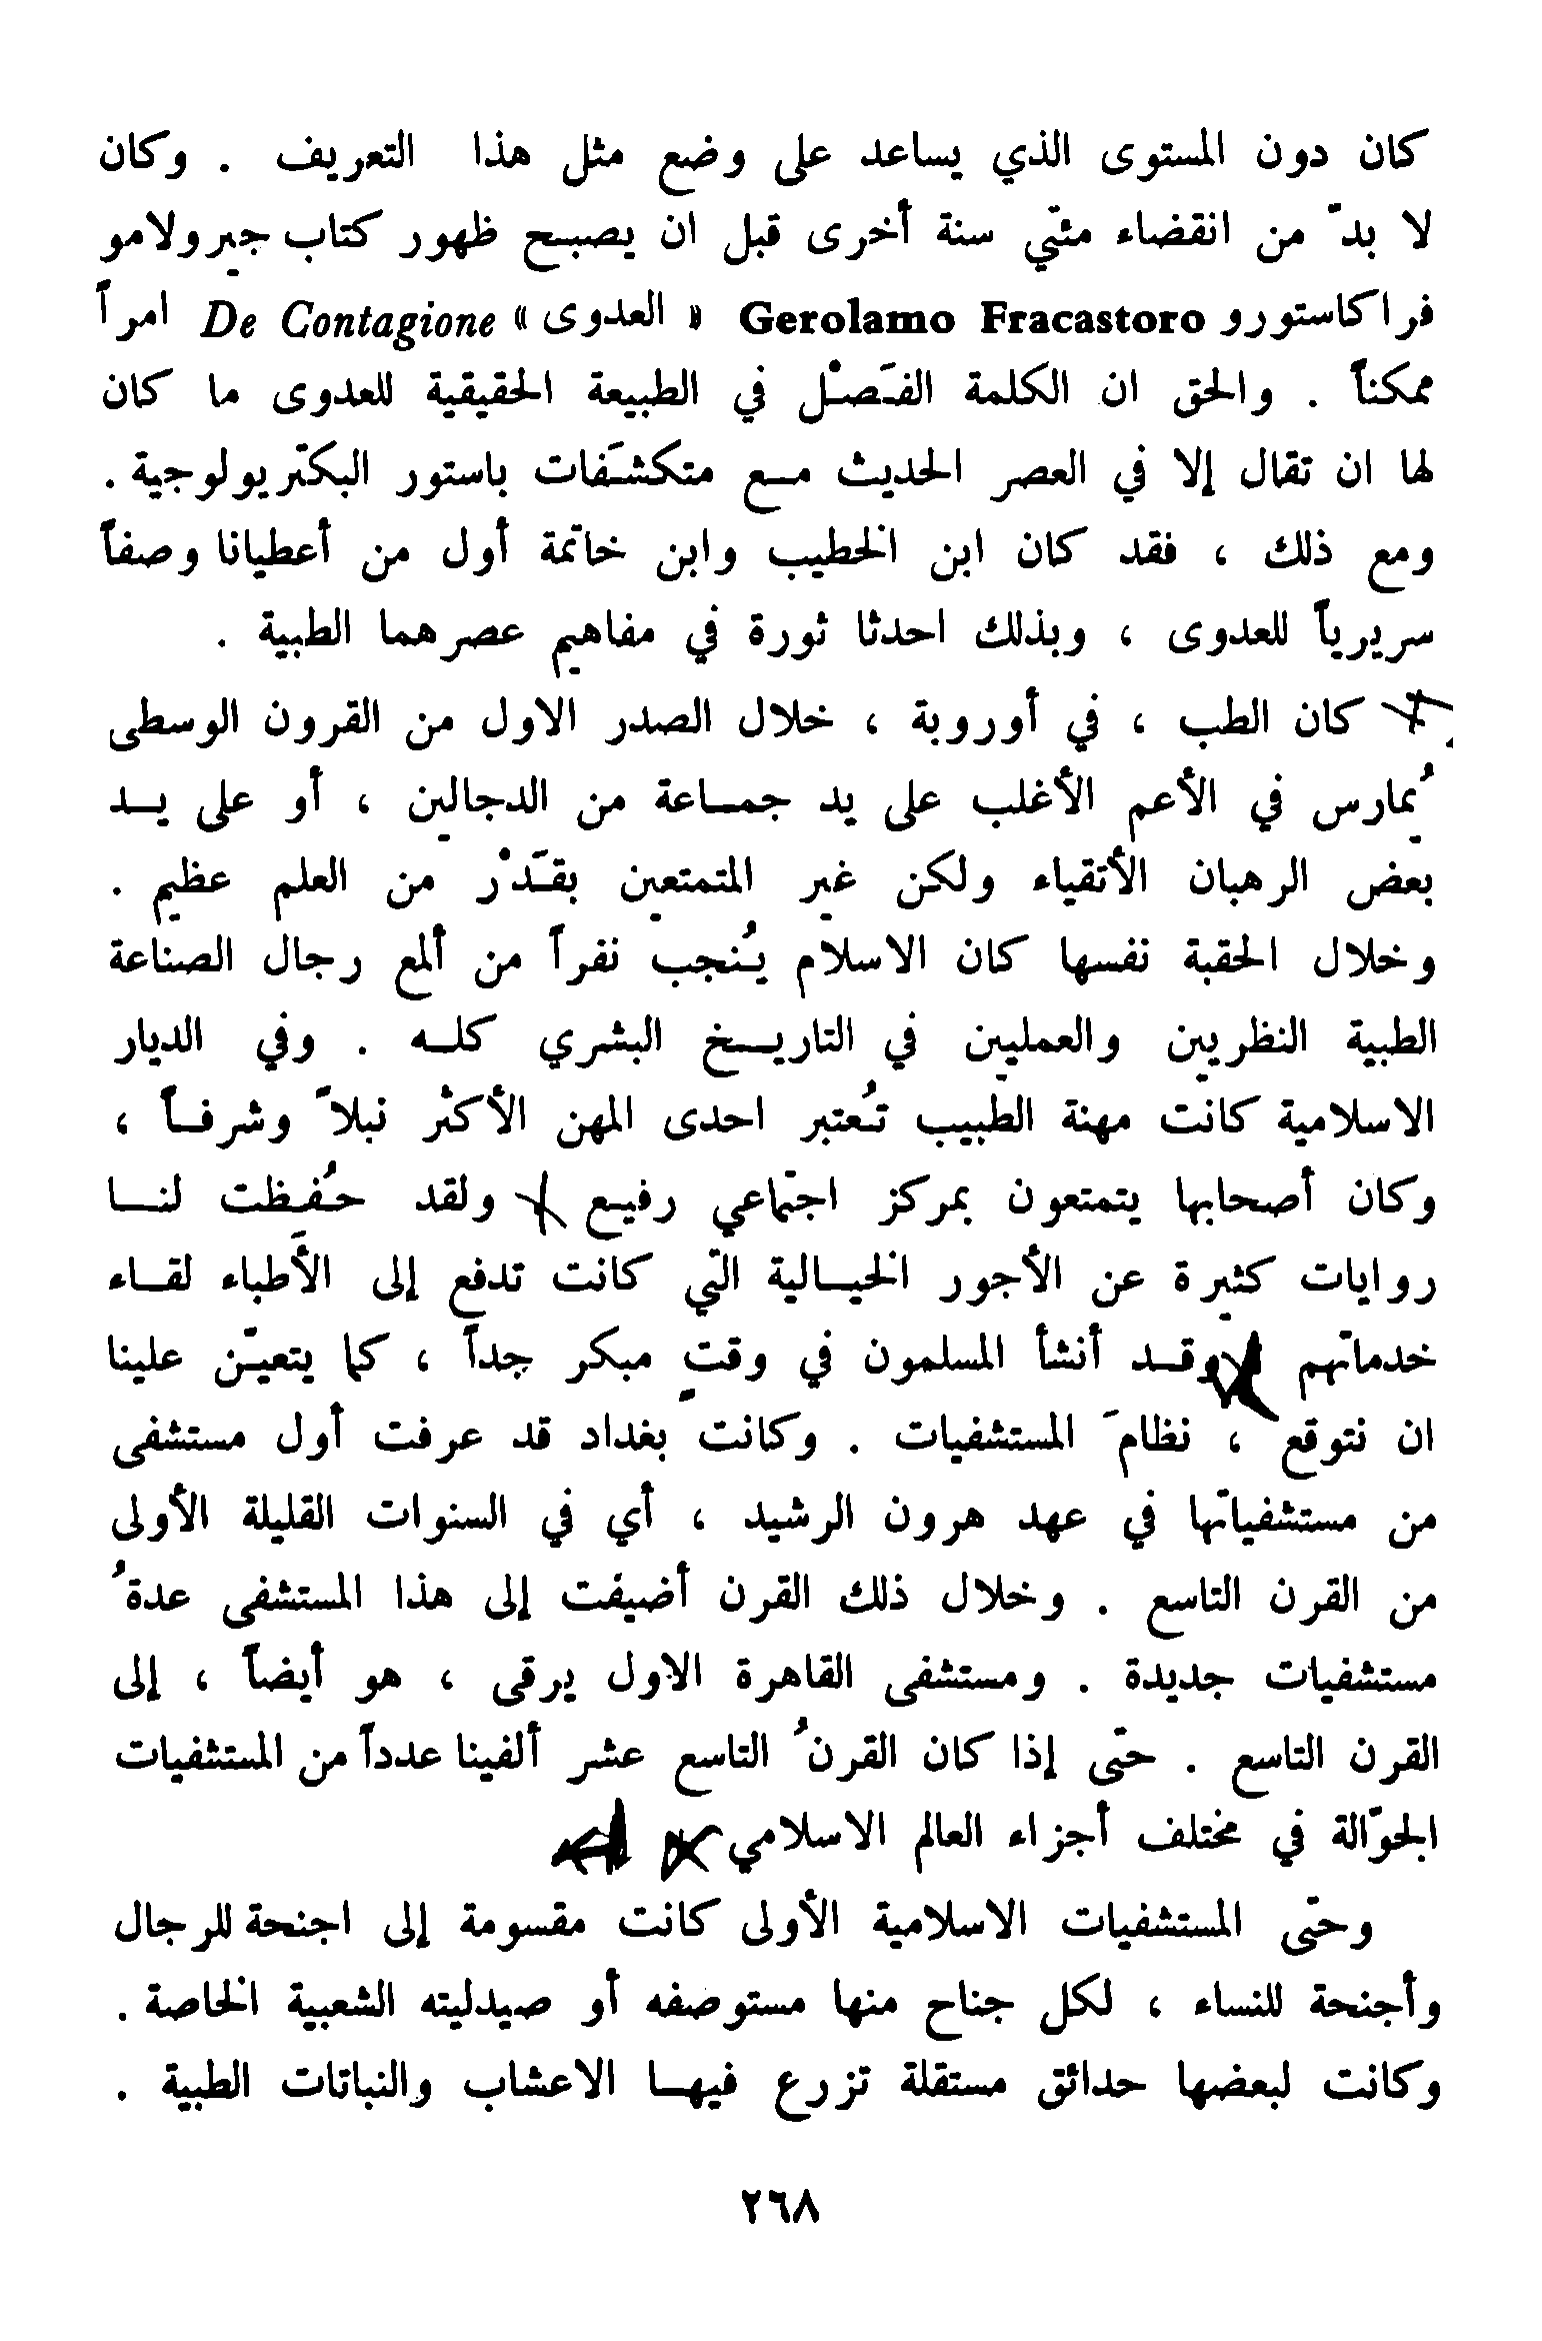 كان دون المستوى الذي يساعد على وضع مثل هذا التعريف . وكان
لا بدّ من انقضاء مئتي سنة أخرى قبل ان يصبح ظهور كتاب جيرولامو
فراكاستورو Gerolamo Fracastoro « العدوى » De Contagione امراً
ممكناً . والحق ان الكلمة الفَصْل في الطبيعة الحقيقية للعدوى ما كان
لها ان تقال إلا في العصر الحديث مع متكشَفات باستور البكتريولوجية .
ومع ذلك ، فقد كان ابن الخطيب وابن خاتمة أول من أعطيانا وصفاً
سريرياً للعدوى ، وبذلك احدثا ثورة في مفاهيم عصرهما الطبية .
كان الطب ، في أوروبة ، خلال الصدر الاول من القرون الوسطى
يُمارس في الأعم الأغلب على يد جمـاعة من الدجالين ، أو على يـد
بعض الرهبان الأتقياء ولكن غير المتمتعين بقَدْر من العلم عظيم .
وخلال الحقبة نفسها كان الاسلام يُنجب نفراً من ألمع رجال الصناعة
الطبية النظريين والعمليين في التاريـخ البشري كلـه . وفي الديار
الاسلامية كانت مهنة الطبيب تُعتبر احدى المهن الأكثر نبلاً وشرفـاً ،
وكان أصحابها يتمتعون بمركز اجتماعي رفيع ولقد حُفِظت لنـا
روايات كثيرة عن الأجور الخيـالية التي كانت تدفع إلى الأَطباء لقـاء
خدماتهم وقـد أنشأ المسلمون في وقتٍ مبكر جداً ، كما يتعيّن علينا
ان نتوقع ، نظامَ المستشفيات . وكانت بغداد قد عرفت أول مستشفى
من مستشفياتها في عهد هرون الرشيد ، أي في السنوات القليلة الأولى
من القرن التاسع . وخلال ذلك القرن أضيفت إلى هذا المستشفى عدةُ
مستشفيات جديدة . ومستشفى القاهرة الاول يرقى ، هو أيضاً ، إلى
القرن التاسع . حتى إذا كان القرنُ التاسع عشر ألفينا عدداً من المستشفيات
الجوّالة في مختلف أجزاء العالم الاسلامي
وحتى المستشفيات الاسلامية الأولى كانت مقسومة إلى اجنحة للرجال
وأجنحة للنساء ، لكل جناح منها مستوصفه أو صيدليته الشعبية الخاصة .
وكانت لبعضها حدائق مستقلة تزرع فيهـا الاعشاب والنباتات الطبية .
٢٦٨